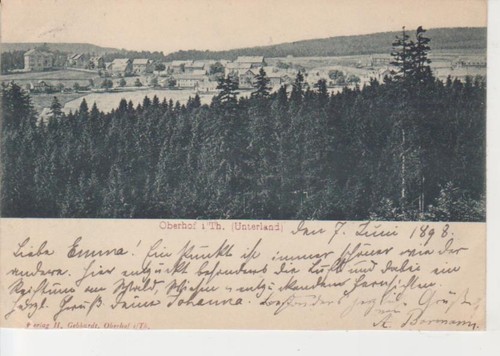 Oberhof i/Th. (Unterland) den 7. Juni 1898.
Liebe Emma! Ein Punkt ist immer schöner wie der
andere. Hier entzückt besonders die Luft und dabei ein
am Wald entzückenden Fernsichten.
Herzl. Gruß Deine Johanna. Besonders herzliche Grüße
A. Bormann
Verlag H. Gebhardt, Oberhof i/Th.